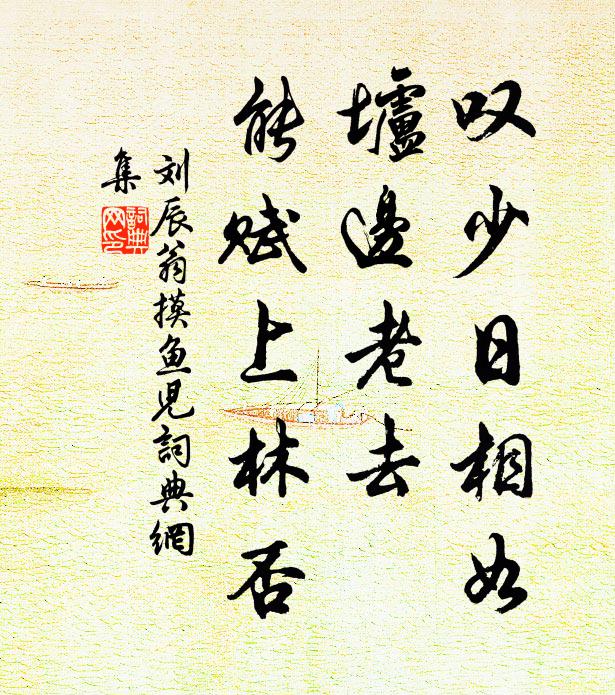 叹少日相如
壚邊老去
能赋上林否
刘辰翁摸鱼児詞典網
集
詞典网印